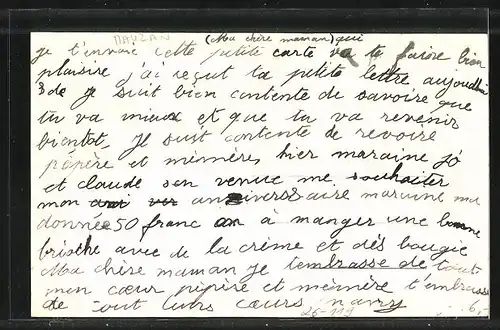 MAUZAN
(Ma chère maman) qui
je t'envoie cette petite carte va te faire bien
plaisire j'ai reçut ta petite lettre aujoudhui
3 de je suit bien contente de savoire que
tu va mieux et que tu va revenir
bientot, Je suit contente de revoire
pépère et mémères, hier maraine jo
et claude son venue me souhaiter
mon aniversaire maraine ma
donnée 50 franc a manger une bonne
brioche avec de la crème et dés bougie
Ma chère maman je tembrasse de tout
mon cœur pépère et mémère t'embrasse
de tout leurs cœurs